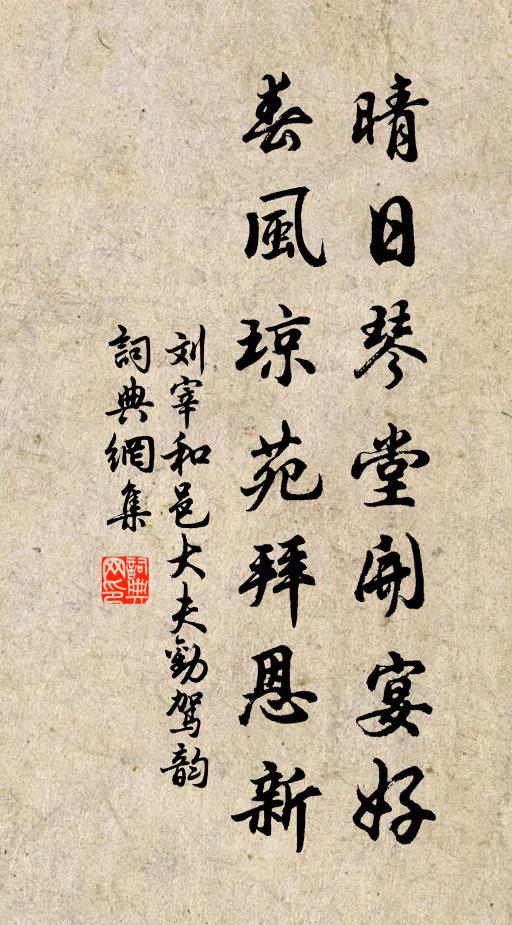 晴日琴堂開宴好
春風琼苑拜恩新
刘宰和邑大夫勸駕韵
詞典網集
詞典网印